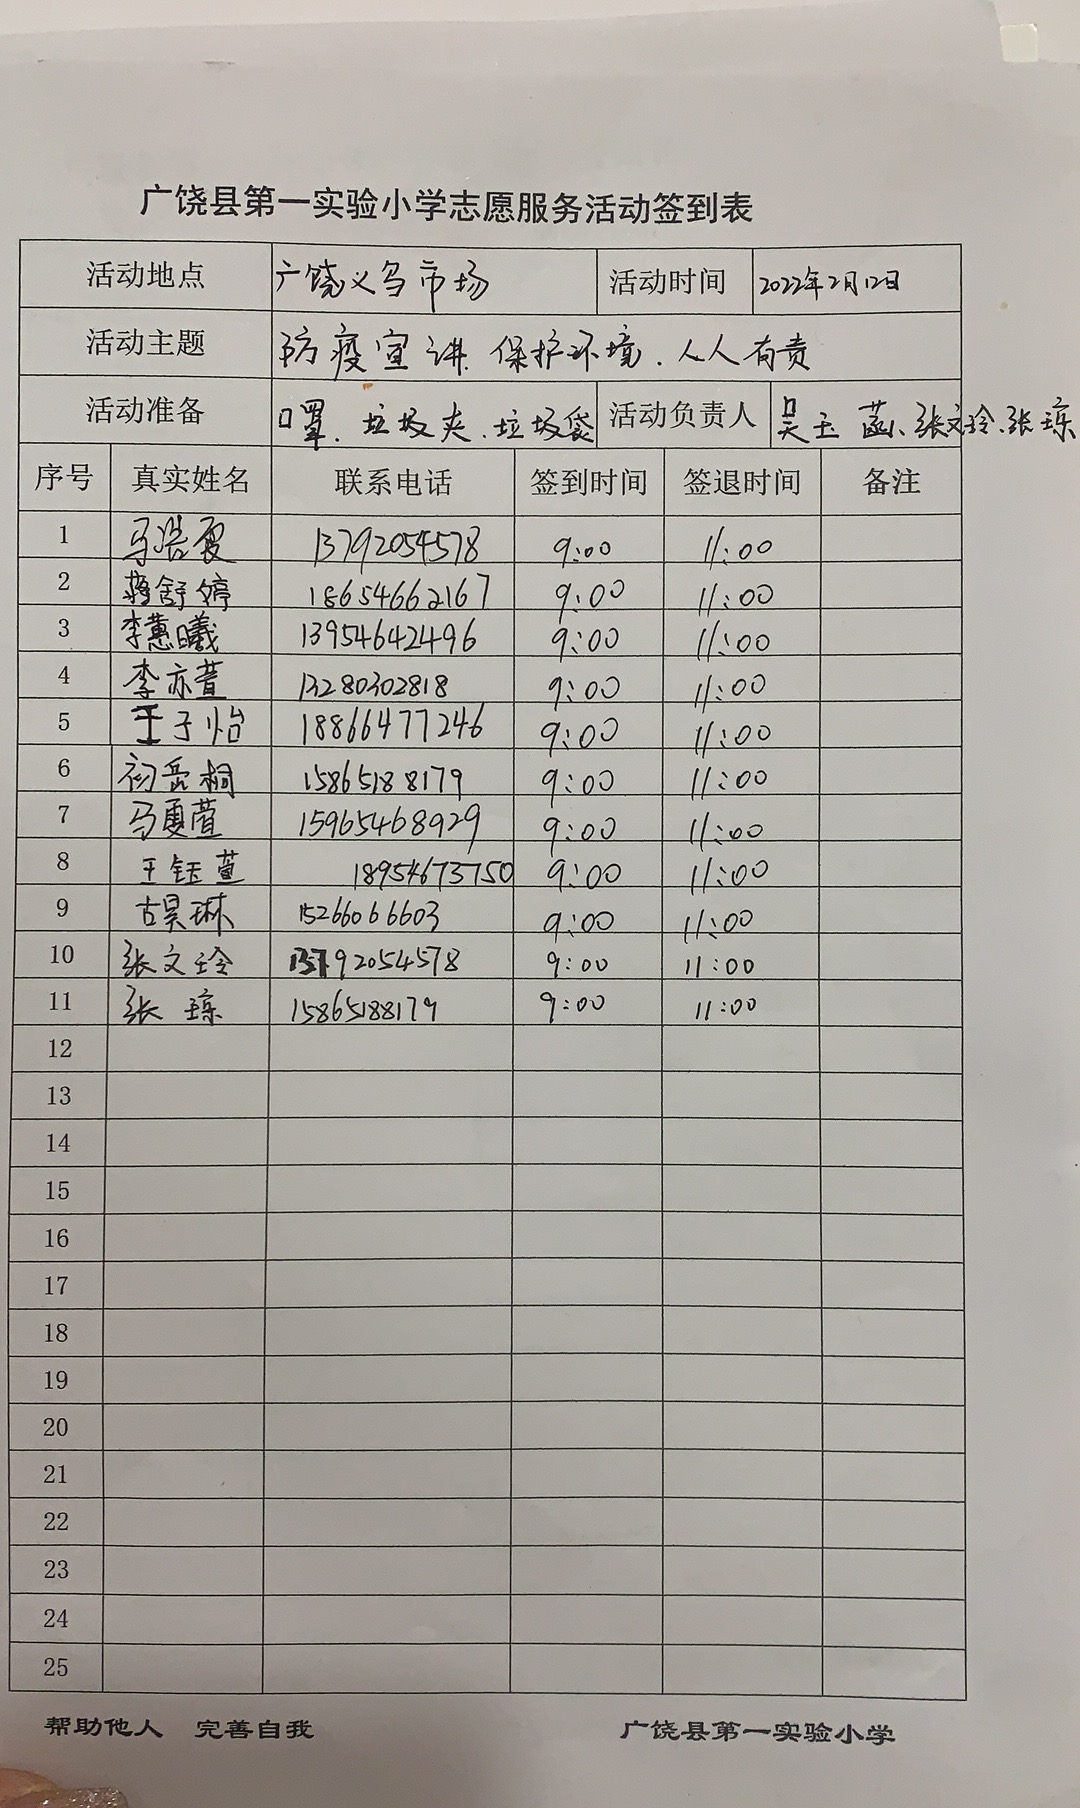 广饶县第一实验小学志愿服务活动签到表
活动地点 广饶义乌市场 活动时间 2022年2月12日
活动主题 防疫宣讲.保护环境.人人有责
活动准备 口罩、垃圾夹、垃圾袋 活动负责人 吴玉菡、张文玲、张琼
序号 真实姓名 联系电话 签到时间 签退时间 备注
1 马浩夏 13792054578 9:00 11:00
2 蒋舒婷 18654662167 9:00 11:00
3 李蕙曦 13954642496 9:00 11:00
4 李亦萱 13280302818 9:00 11:00
5 王子怡 18866477246 9:00 11:00
6 初岳桐 15865188179 9:00 11:00
7 马夏萱 15965468929 9:00 11:00
8 王钰萱 18954673750 9:00 11:00
9 古昊琳 15266066603 9:00 11:00
10 张文玲 13792054578 9:00 11:00
11 张琼 15865188179 9:00 11:00
12
13
14
15
16
17
18
19
20
21
22
23
24
25
帮助他人 完善自我 广饶县第一实验小学